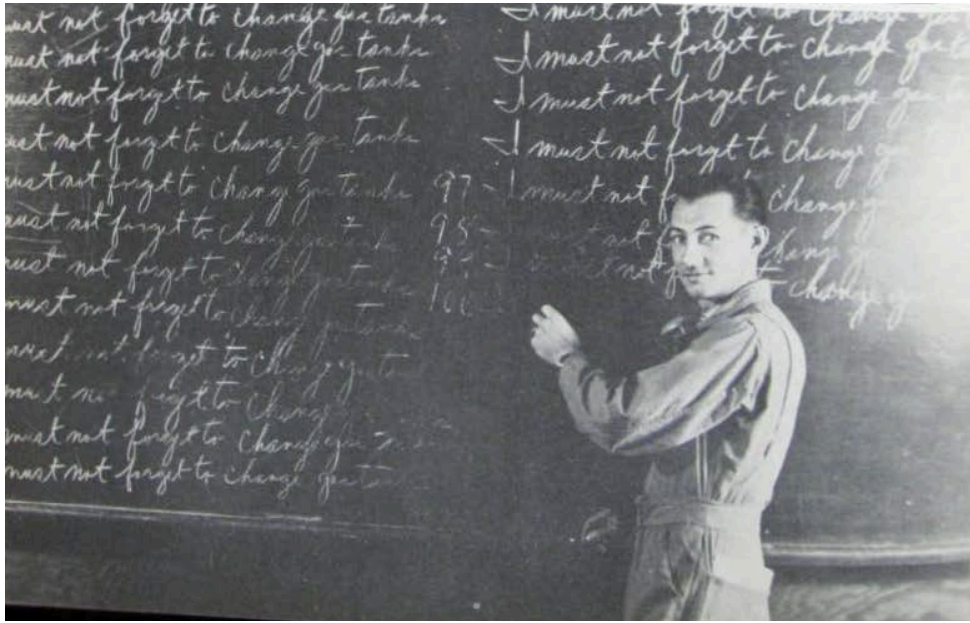 must not forget to change gas tanks
must not forget to change gas tanks
must not forget to change gas tanks
must not forget to change gas tanks
must not forget to change gas tanks
must not forget to change gas tanks
must not forget to change gas tanks
must not forget to change gas tanks
must not forget to change gas tan
must not forget to change
must not forget to change gas
must not forget to change gas tank
I must not forget to change gas
I must not forget to change gas t
I must not forget to change gas ta
I must not forget to change ga
97 - I must not f change g
98 - must not f change g
99 - must not f to change g
100